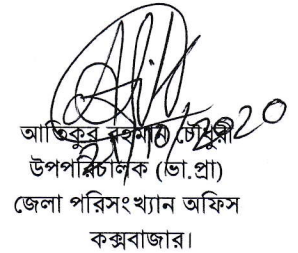 22/10/2020
আতিকুর রহমান চৌধুরী
উপপরিচালক (ভা.প্রা)
জেলা পরিসংখ্যান অফিস
কক্সবাজার।